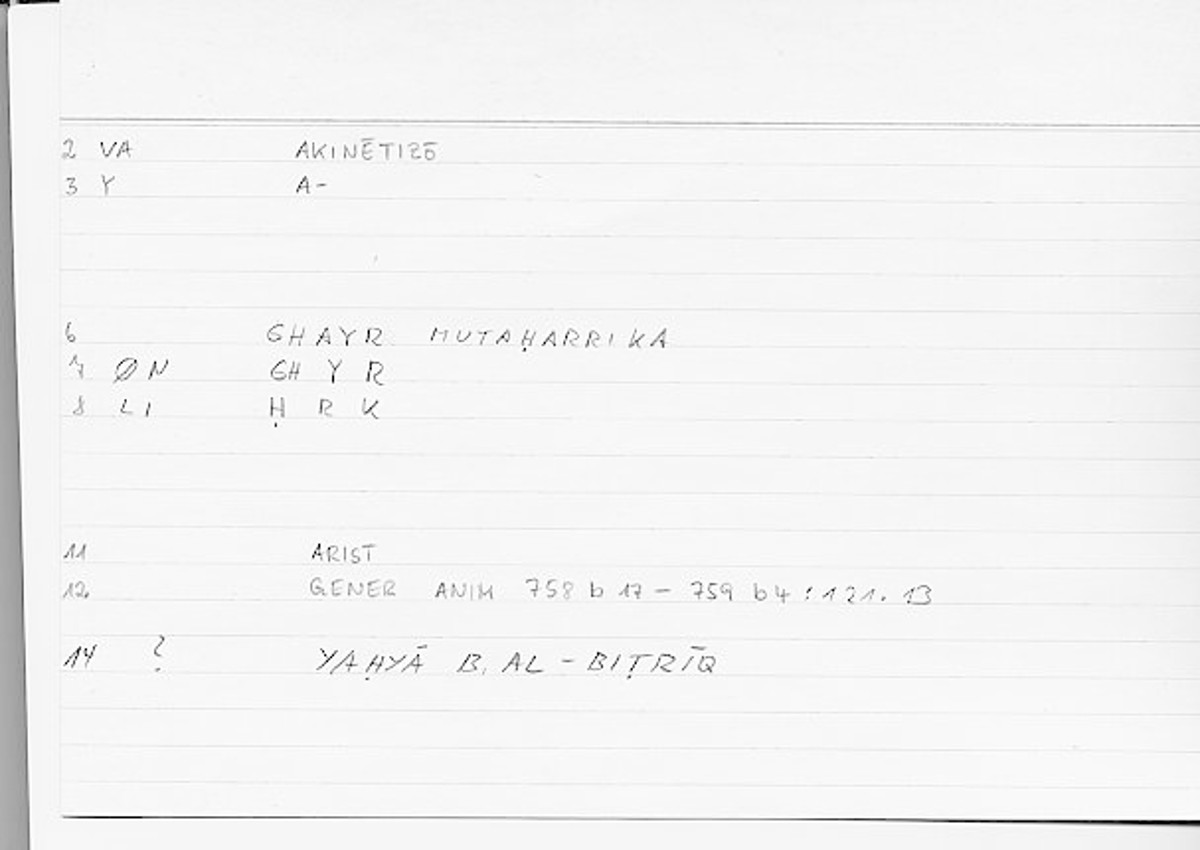 2 VA AKINĒTIZŌ
3 Y A-
6 GHAYR MUTAḤARRIKA
7 ØN GH Y R
8 LI Ḥ R K
11 ARIST
12 GENER ANIM 758 b 17 - 759 b 4 : 121. 13
14 ? YAḤYĀ B. AL - BIṬRĪQ